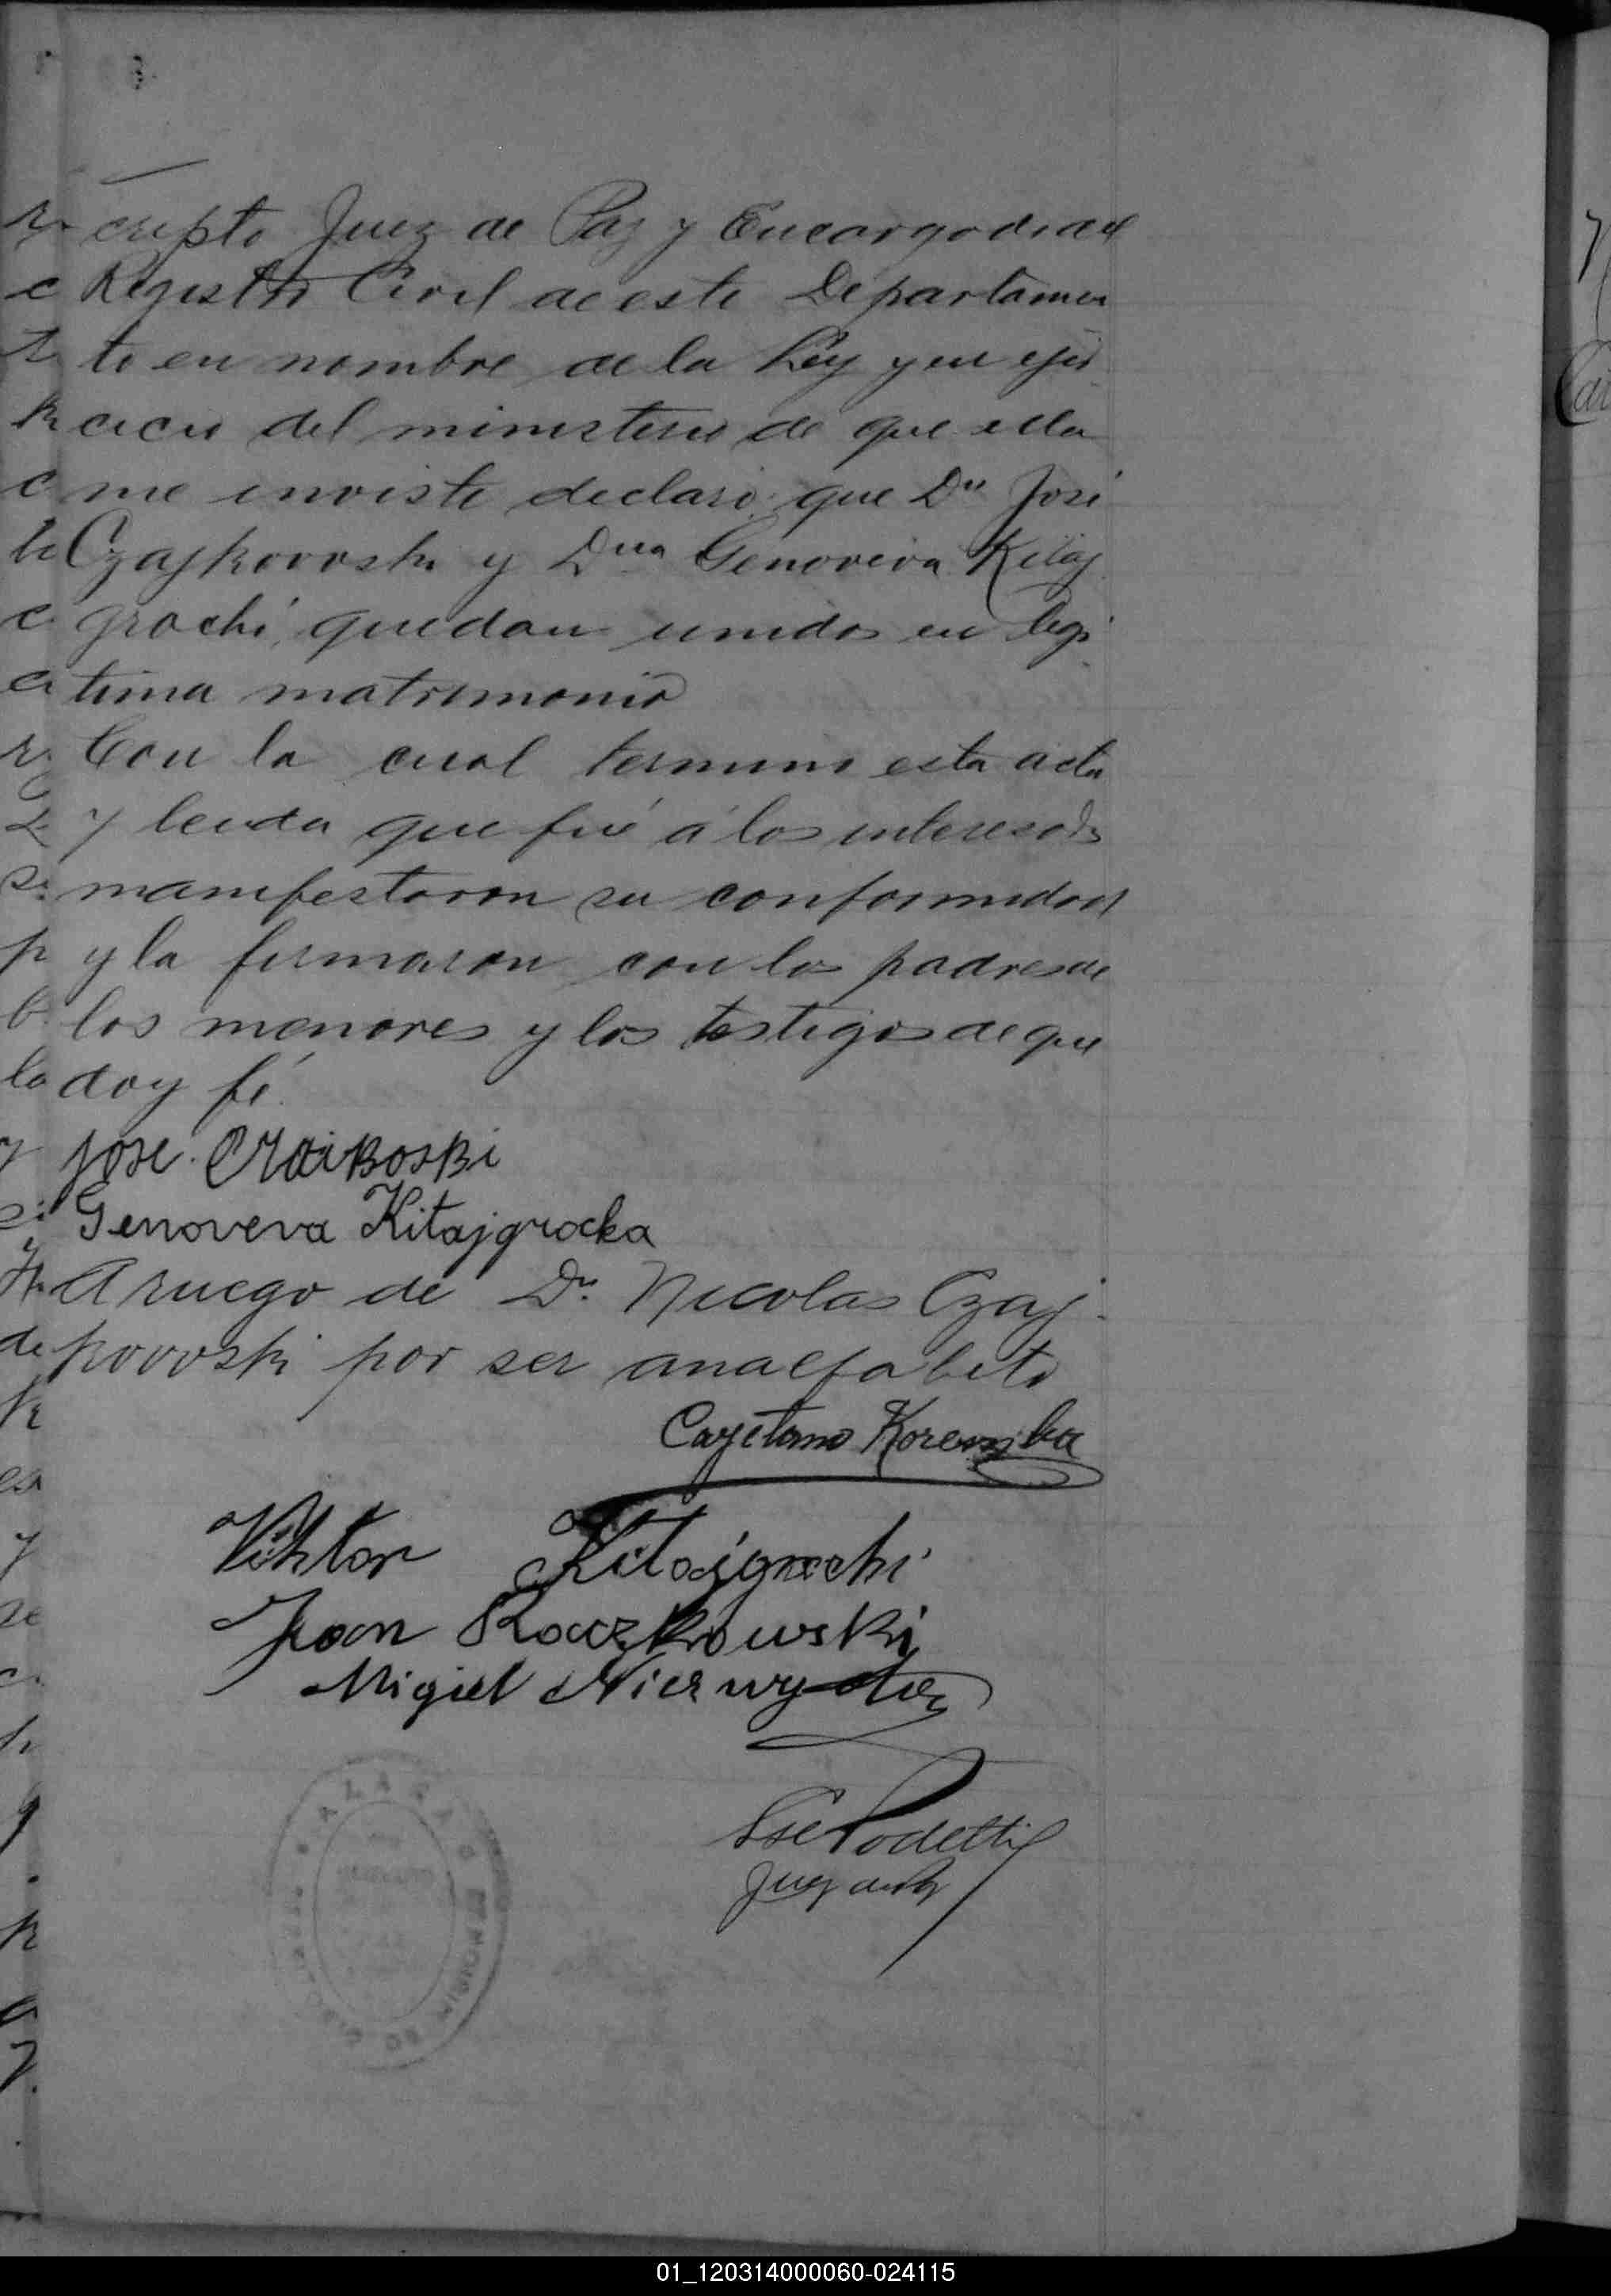 cripto Juez de Paz y Encargado del
Registro Civil de este Departamen
to en nombre de la Ley y en ejer
cicio del ministerio de que ella
me inviste declaro que Dn José
Czajkovoski y Dna Genoveva Kitaj
grocki, quedan unidos en legi
tima matrimonio
Con la cual termino esta acta
y leida que fué á los interesados
manifestaron su conformidad
y la firmaron con los padres de
los menores y los testigos de que
doy fé.
Jose Czaikoski
Genoveva Kitajgrocka
A ruego de Dn. Nicolas Czaj
kovoski por ser analfabeto
Cayetano Koremba
Viktor Kitajgrocki
Juan Raczkowski
Miguel
Podetti
Juez de Paz
01_120314000060-024115